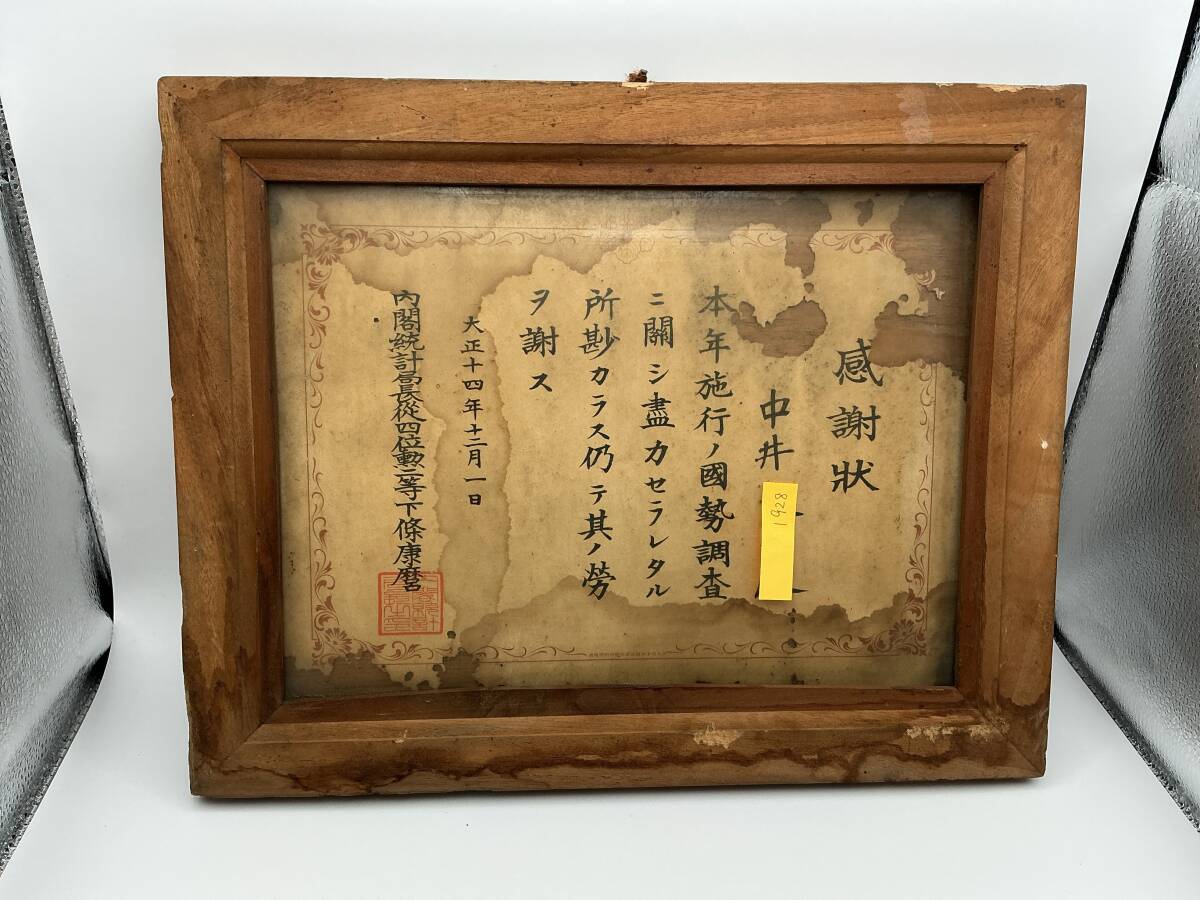 感謝狀
中井
本年施行ノ國勢調査
ニ關シ盡力セラレタル
所尠カラス仍テ其ノ勞
ヲ謝ス
大正十四年十二月一日
內閣統計局長從四位勳三等下條康麿
1928